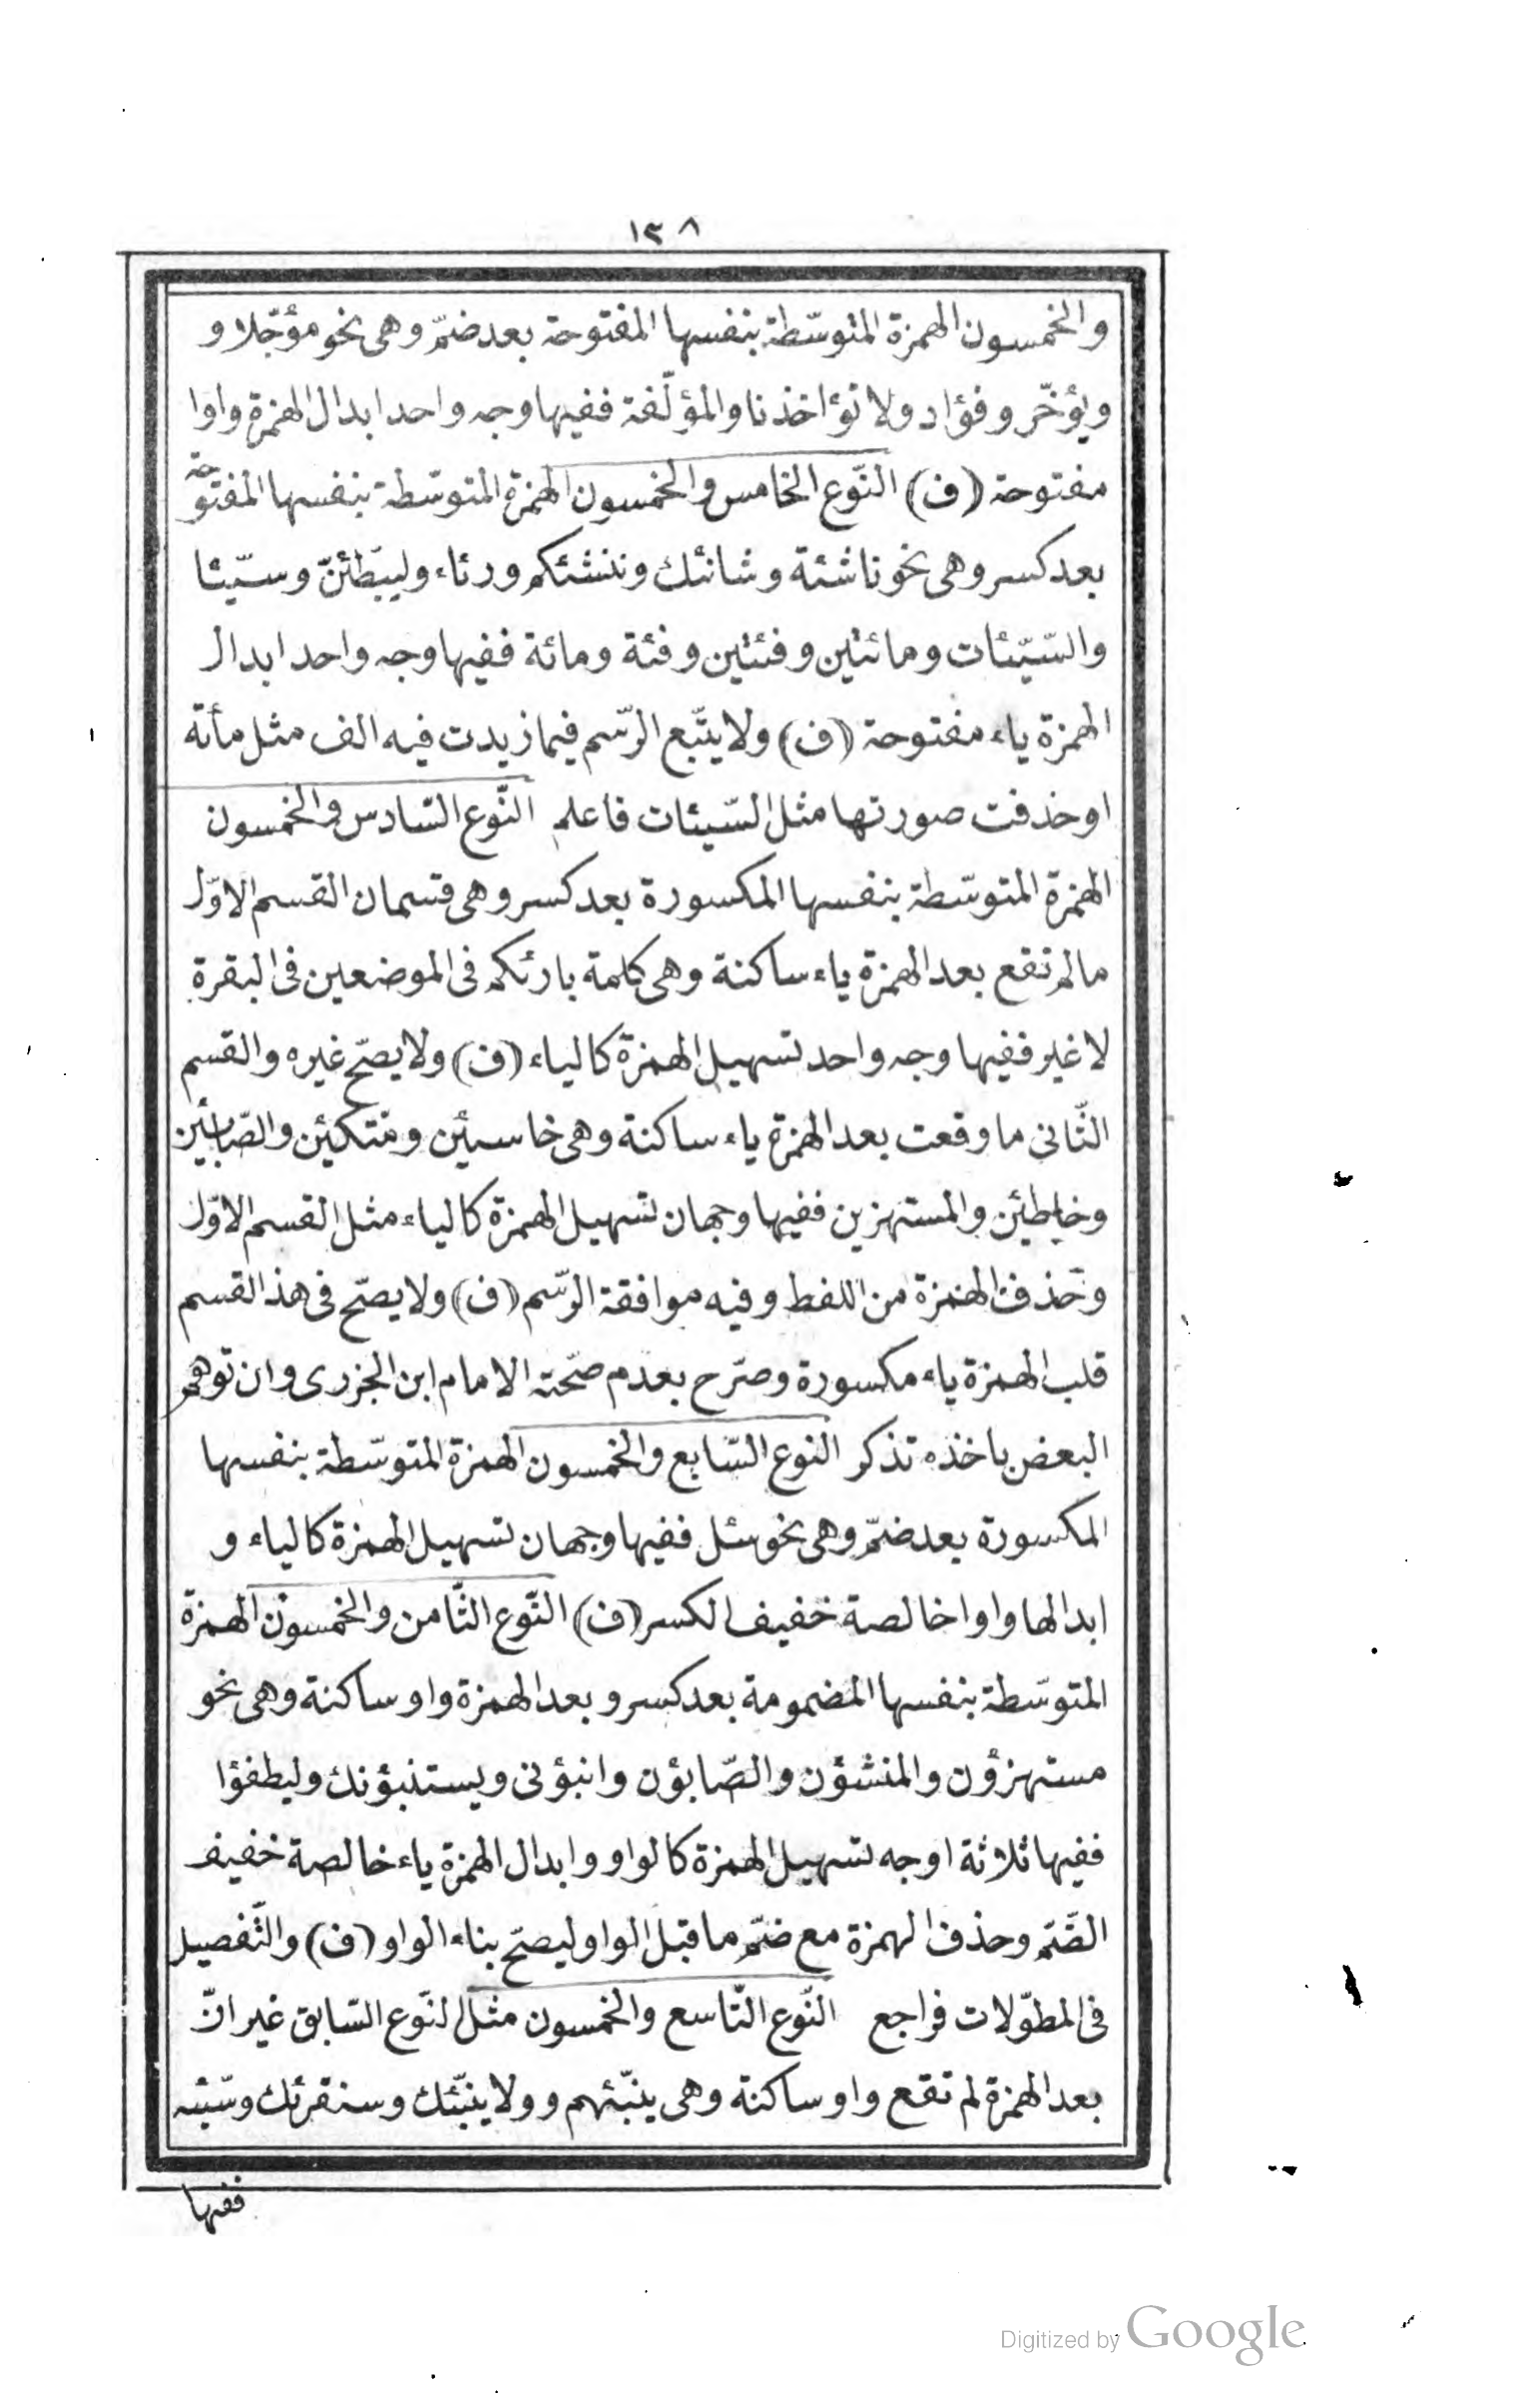 ١٣٨
والخمسون الهمزة المتوسّطة بنفسها المفتوحة بعد ضمّ وهى نحو مؤجّلا و
ويؤخّر وفؤاد ولا تؤاخذنا والمؤلّفة ففيها وجه واحد ابدال الهمزة واوا
مفتوحة (ف) النّوع الخامس والخمسون الهمزة المتوسّطة بنفسها المفتوحة
بعد كسر وهى نحو ناشئة وشانئك وننشئكم ورئاء وليبطّئنّ وسيّئا
والسّيّئات ومائتين وفئتين وفئة ومائة ففيها وجه واحد ابدال
الهمزة ياء مفتوحة (ف) ولا يتّبع الرّسم فيما زيدت فيه الف مثل مأئة
او حذفت صورتها مثل السّيئات فاعلم النّوع السّادس والخمسون
الهمزة المتوسّطة بنفسها المكسورة بعد كسر وهى قسمان القسم الاوّل
مالم تقع بعد الهمزة ياء ساكنة وهى كلمة بارئكم فى الموضعين فى البقرة
لا غير ففيها وجه واحد تسهيل الهمزة كالياء (ف) ولا يصحّ غيره والقسم
الثّانى ما وقعت بعد الهمزة ياء ساكنة وهى خاسئين ومتكئين والصّابئين
وخاطئين والمستهزين ففيها وجهان تسهيل الهمزة كالياء مثل القسم الاوّل
وحذف الهمزة من اللفظ وفيه موافقة الرّسم (ف) ولا يصحّ فى هذا القسم
قلب الهمزة ياء مكسورة وصرّح بعدم صحّته الامام ابن الجزرى وان توهم
البعض باخذه تذكر النوع السّابع والخمسون الهمزة المتوسّطة بنفسها
المكسورة بعد ضمّ وهى نحو سئل ففيها وجهان تسهيل الهمزة كالياء و
ابدالها واوا خالصة خفيف الكسر (ف) النّوع الثّامن والخمسون الهمزة
المتوسّطة بنفسها المضمومة بعد كسر وبعد الهمزة واو ساكنة وهى نحو
مستهزؤن والمنشؤن والصّابؤن وانبؤنى ويستنبؤنك وليطفؤا
ففيها ثلاثة اوجه تسهيل الهمزة كالواو وابدال الهمزة ياء خالصة خفيف
الضّمّ وحذف الهمزة مع ضمّ ما قبل الواو ليصحّ بناء الواو (ف) والتّفصيل
فى المطوّلات فراجع النّوع التّاسع والخمسون مثل النّوع السّابق غير انّ
بعد الهمزة لم تقع واو ساكنة وهى ينبّئهم وولا ينبّئك وسنقرئك وسّيّئه
ففيها
Digitized by Google